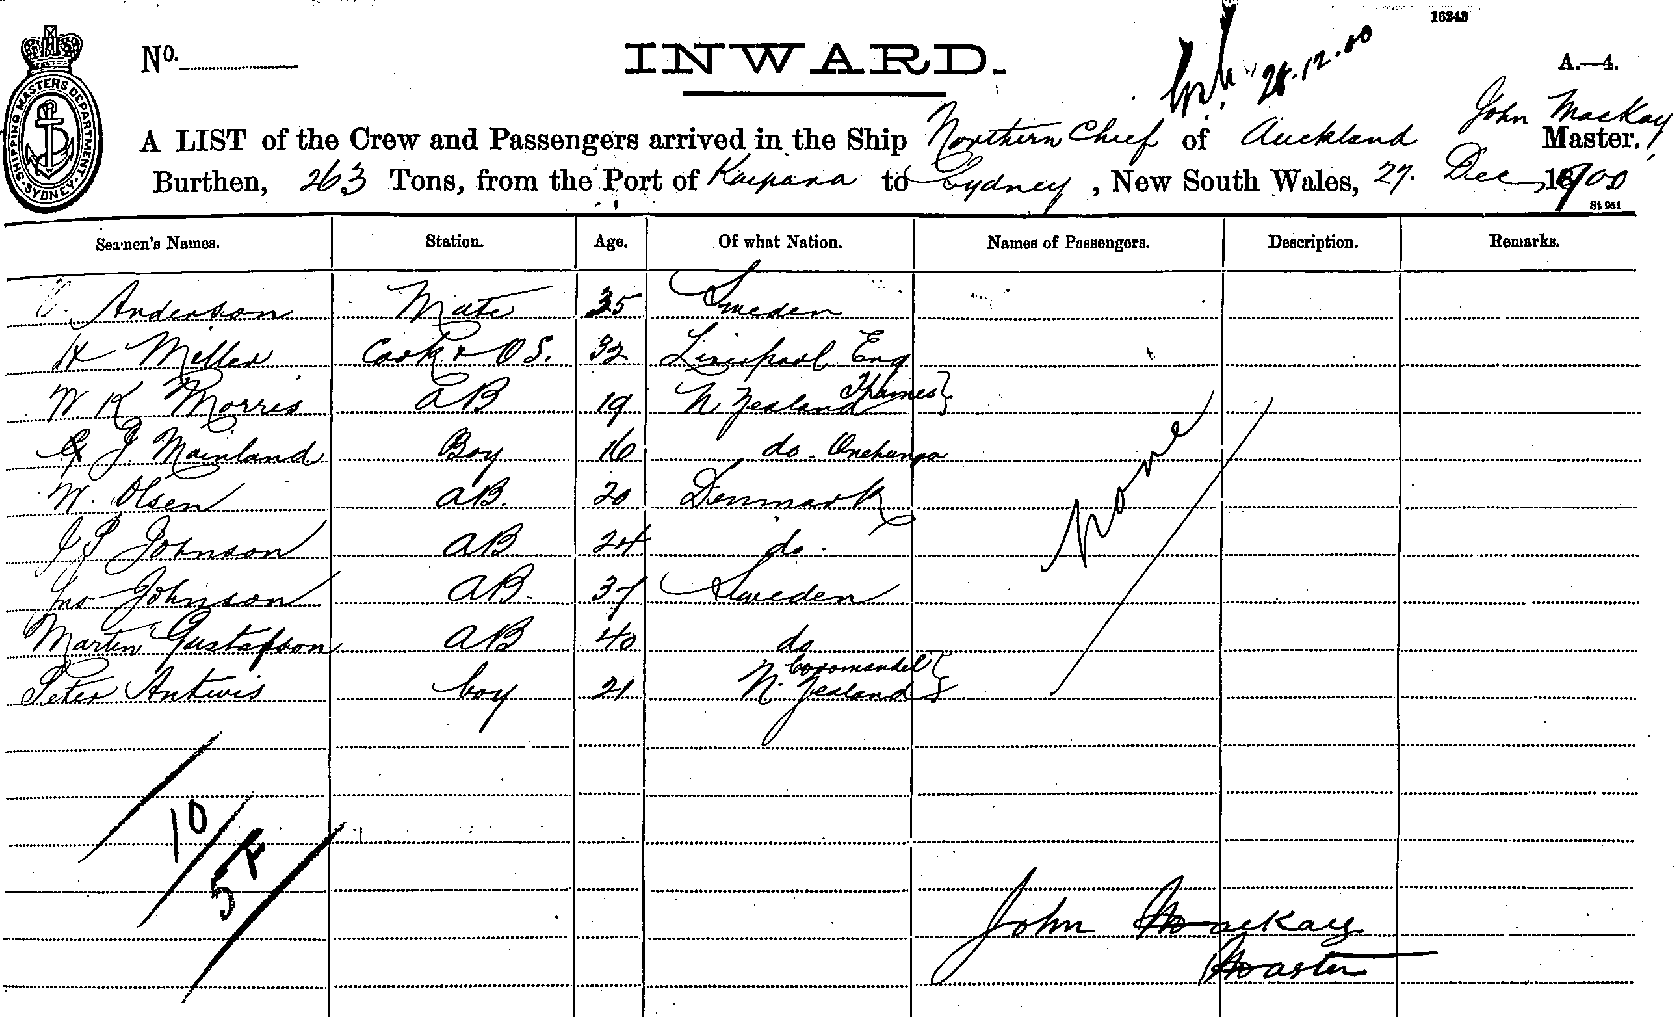 16243
No.
INWARD.
28.12.00
A.—4.
SHIPPING MASTERS DEPARTMENT SYDNEY
John Mackay
A LIST of the Crew and Passengers arrived in the Ship Northern Chief of Auckland Master,
Burthen, 263 Tons, from the Port of Kaipara to Sydney, New South Wales, 27. Dec 1900
Seamen's Names. Station. Age. Of what Nation. Names of Passengers. Description. Remarks.
Anderson Mate 35 Sweden
H Miller Cook & OS. 32 Liverpool Eng
W K Morris AB 19 N Zealand Thames
J Mainland Boy 16 do. Onehunga
W. Olsen AB. 20 Denmark
Johnson AB 24 do.
Jno Johnson AB. 37 Sweden
Martin Gustafson AB 40 do
Peter Antwis boy 21 Coromandel N. Zealand
None
10
5F
John Mackay
Master